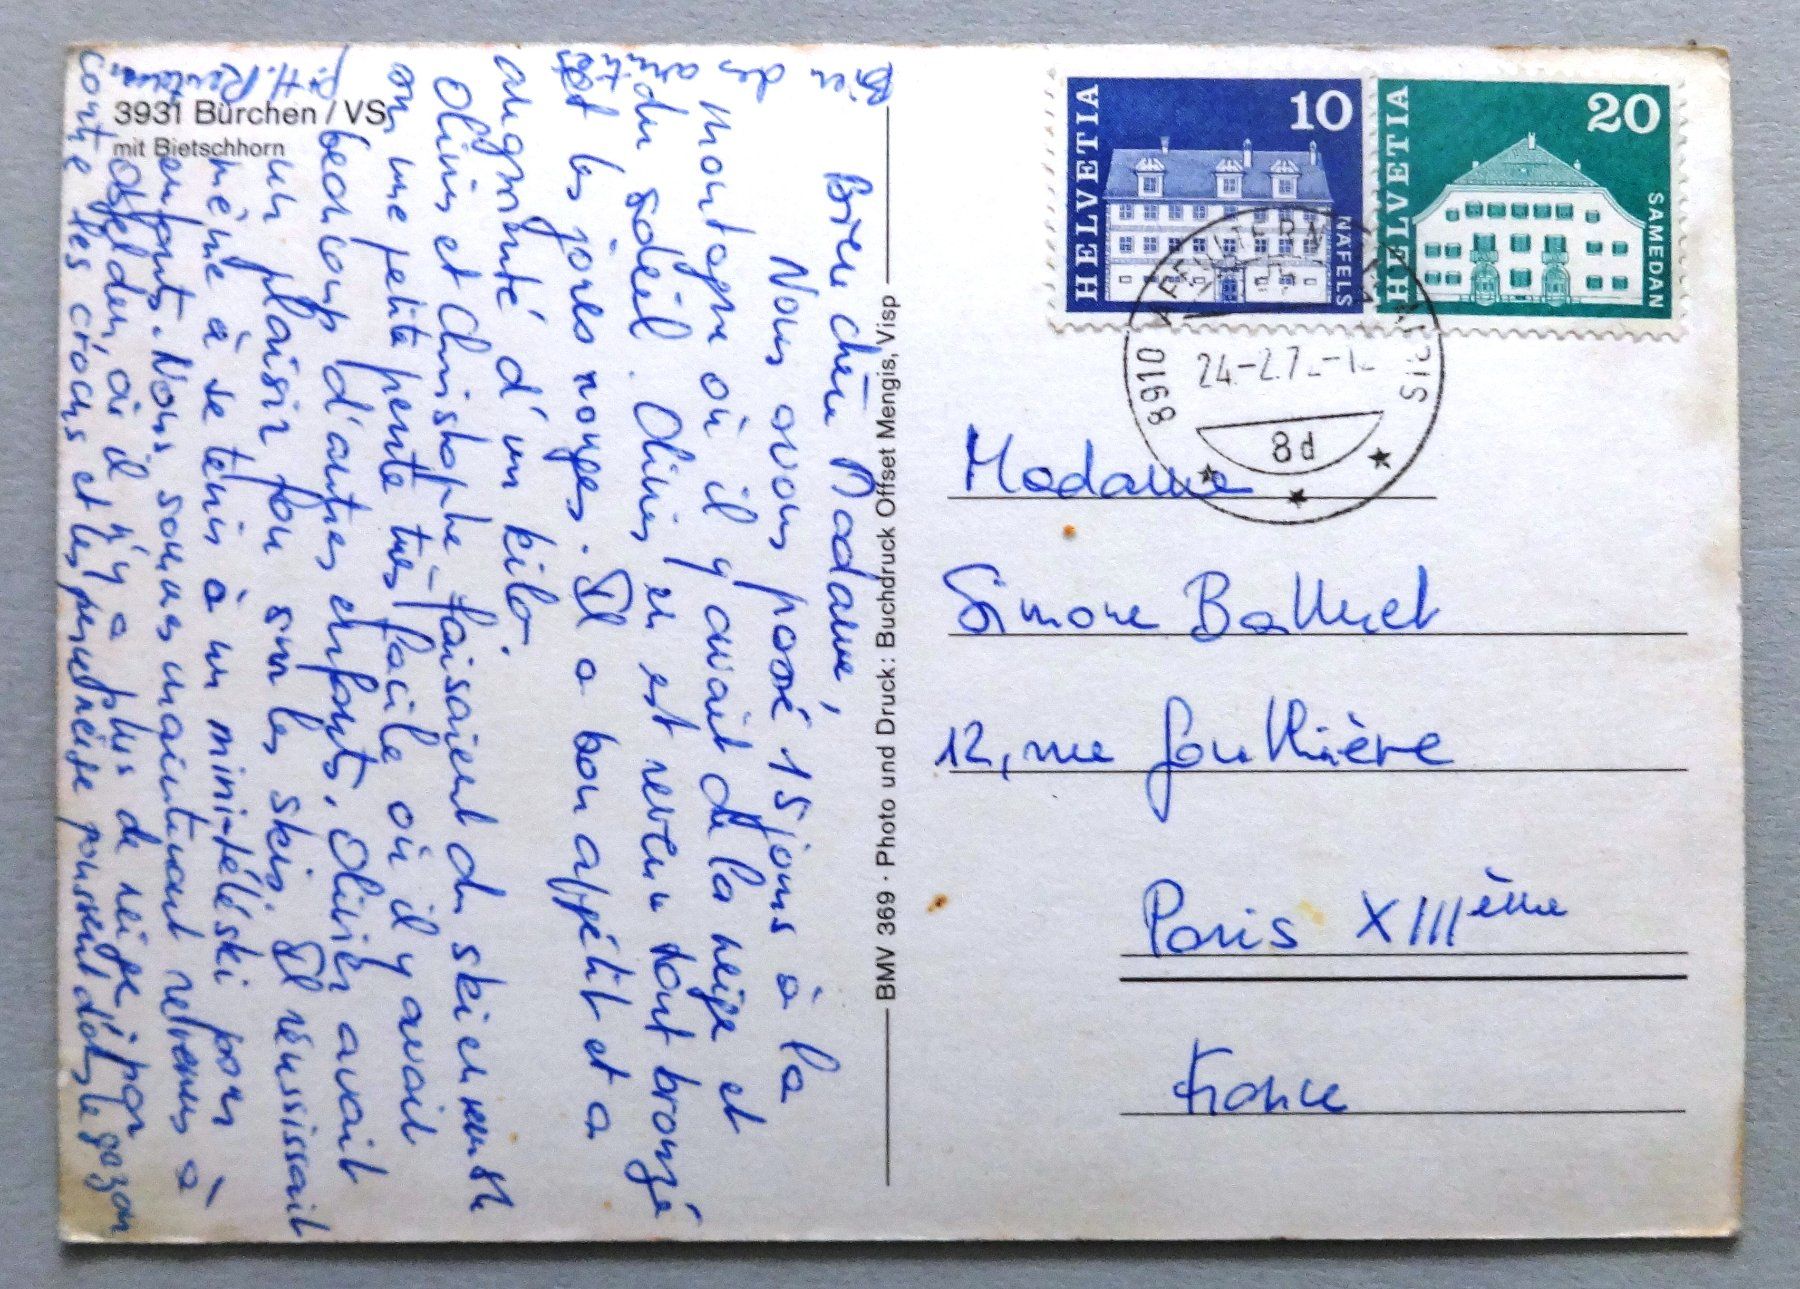 3931 Bürchen / VS
mit Bietschhorn
Bien chère Madame,
Nous avons passé 15 jours à la
montagne où il y avait de la neige et
du soleil. Olivier en est revenu tout bronzé
et les joues rouges. Il a bon appétit et a
augmenté d'un kilo.
Olivier et Christophe faisaient du ski ensemble
sur une petite pente très facile où il y avait
beaucoup d'autres enfants. Olivier avait
un plaisir fou sur les skis. Il réussissait
même à se tenir à un mini-téléski pour
enfants. Nous sommes maintenant revenus à
où il n'y a plus de neige, par
contre les crocus et les perce-neige poussent dans le gazon
Bien
des
amitiés
BMV 369 · Photo und Druck: Buchdruck Offset Mengis, Visp
HELVETIA
10
NÄFELS
HELVETIA
20
SAMEDAN
8910 AFFOLTERN AM ALBIS
24.-2.7
8d
Madame
Simone Balluet
12, rue Gouthière
Paris XIIIème
France